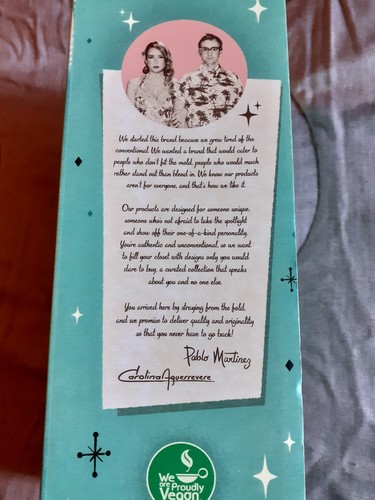 We started this brand because we grew tired of the
conventional. We wanted a brand that would cater to
people who don't fit the mold, people who would much
rather stand out than blend in. We know our products
aren't for everyone, and that's how we like it.
Our products are designed for someone unique,
someone who's not afraid to take the spotlight
and show off their one-of-a-kind personality.
You're authentic and unconventional, so we want
to fill your closet with designs only you would
dare to buy, a curated collection that speaks
about you and no one else.
You arrived here by straying from the fold,
and we promise to deliver quality and originality
so that you never have to go back!
Pablo Martinez
Carolina Aguerrevere
We
are Proudly
Vegan